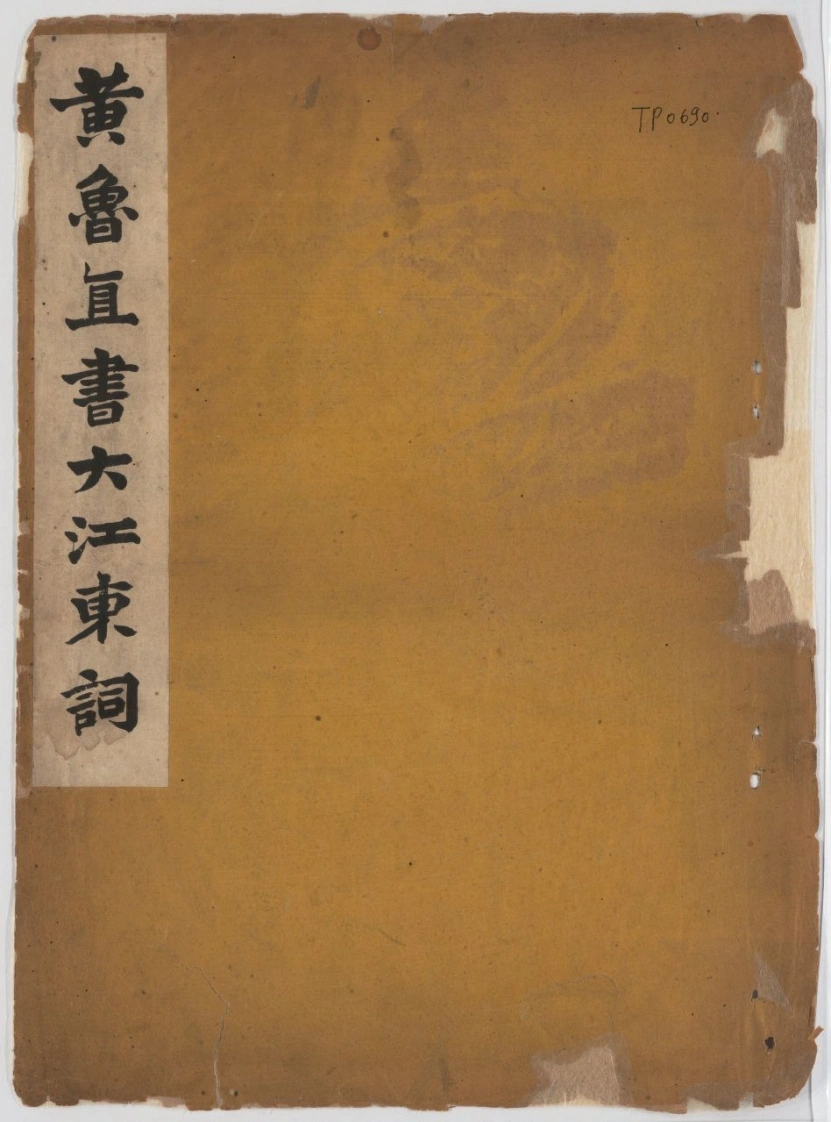 黃魯直書大江東詞
TP0690